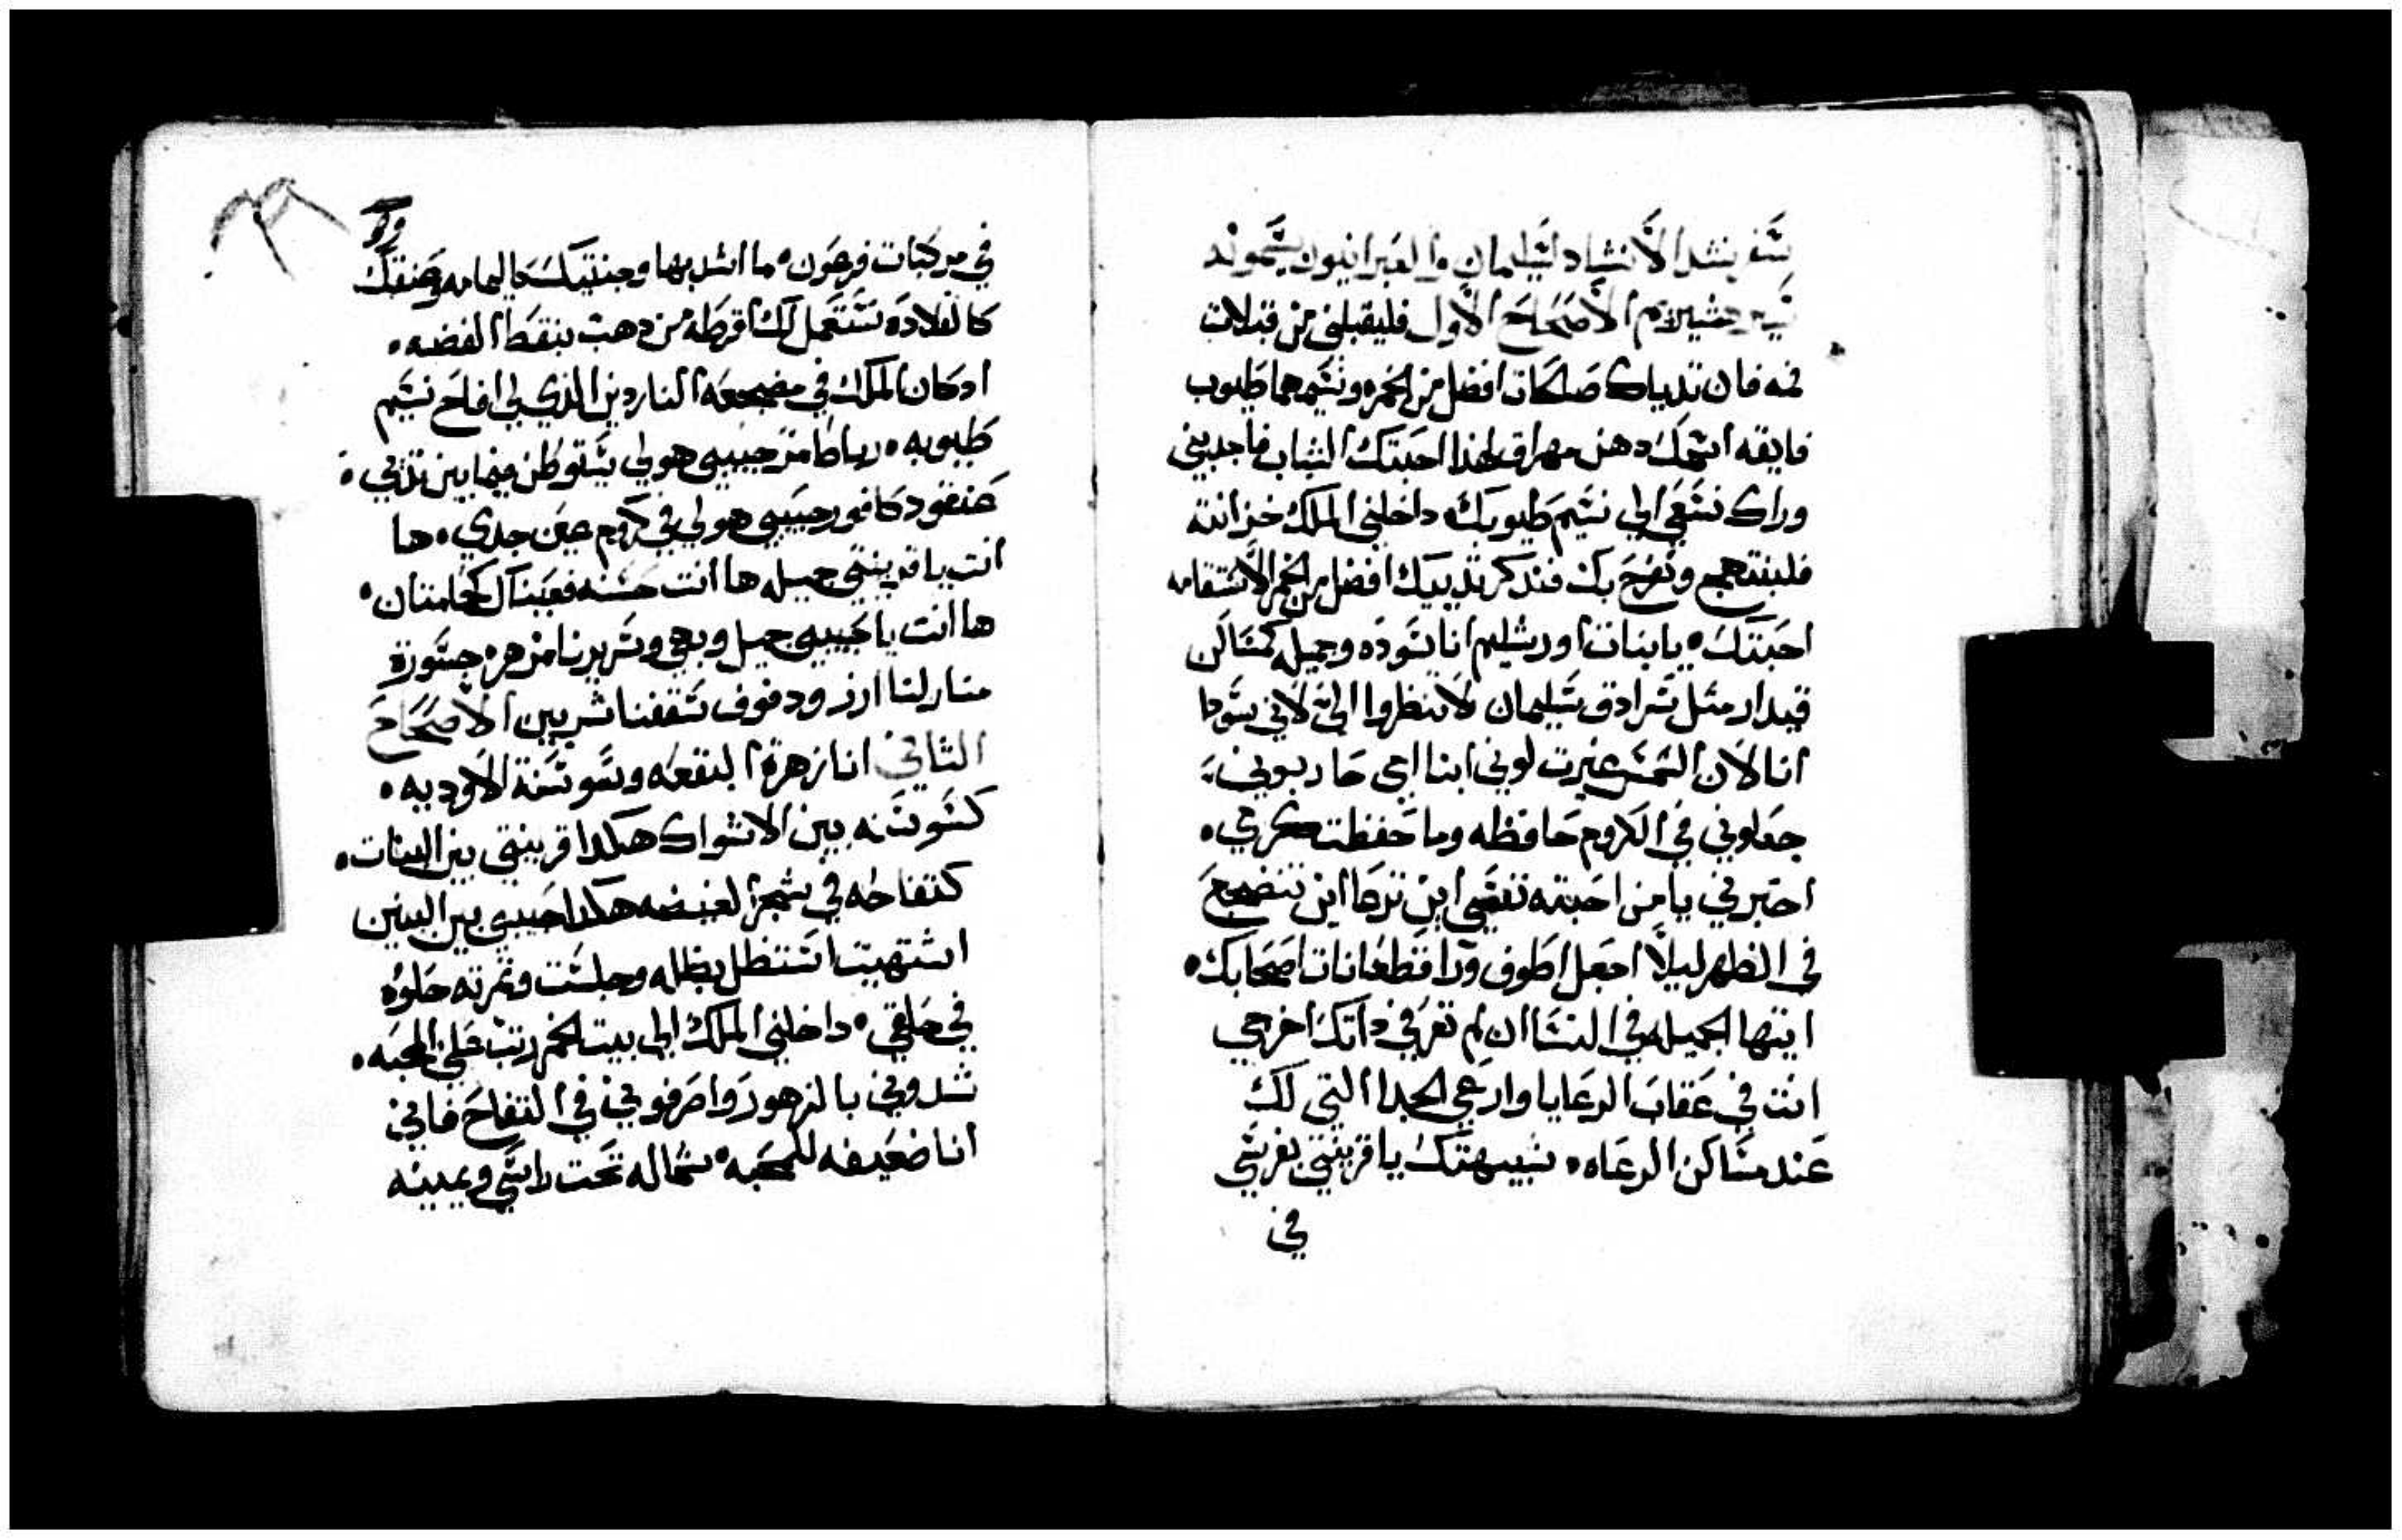 سفر نشد الأنشاد لسليمان والعبرانيون يسمونه
سير هشيريم الأصحاح الأول فليقبلني من قبلات
فمه فان تدياك صالحات افضل من الخمره ونسيمهما طيوب
فايقه اسمك دهن مهراق لهذا احبتك الشباب فاجدبيني
وراك نسعى الى نسيم طيوبك داخلني الملك خزانته
فلنبتهج ونفرح بك فندكر تدييك افضل من الخمر الاستقامه
احبتك يا بنات اورشليم انا سوده وجميله كمساكن
قيدار مثل سرادق سليمان لا تنظروا اليّ لاني سودا
انا لان الشمس غيرت لوني ابنا امي حاربوني
جعلوني في الكروم حافظه وما حفظت كرمي
اخبرني يا من احبته نفسي اين ترعا اين تتضجع
في الظهر ليلا اجعل اطوف ورا قطعانات اصحابك
ايتها الجميله في النسا ان لم تعرفي داتك اخرجي
انت في عقاب الرعايا وارعي الجدا التي لك
عند مساكن الرعاه شبيهتك يا قرينتي بفرسي
في
في مركبات فرعون ما اشد بها وجنتيك كاليمامه وعنقك
كالقلاده نستعمل لك اقرطه من دهب بنقط الفضه
اد كان الملك في مضجعه الناردين الذي لي افاح نسيم
طيوبه رباطا مر حبيبي هو لي يتوطن فيما بين تديي
عنقود كافور حبيبي هو لي في كروم عين جدي ها
انت يا قرينتي جميله ها انت حسنه فعيناك كحمامتان
ها انت يا حبيبي جميل وبهي وسريرنا مزهره جسورة
منازلنا ارز ودفوف سقفنا شربين الأصحاح
الثاني انا زهرة البقعه وسوسنة الاوديه
كسوسنه بين الاشواك هكدا قرينتي بين البنات
كتفاحه في شجر الغيضه هكدا حبيبي بين البنين
اشتهيت استظل بظله وجلست وثمرته حلوه
في حلقي داخلني الملك الى بيت الخمر رتب عليّ المحبه
شدوني بالزهور واصرفوني في التفاح فاني
انا ضعيفه للمحبه شماله تحت راسي ويمينه